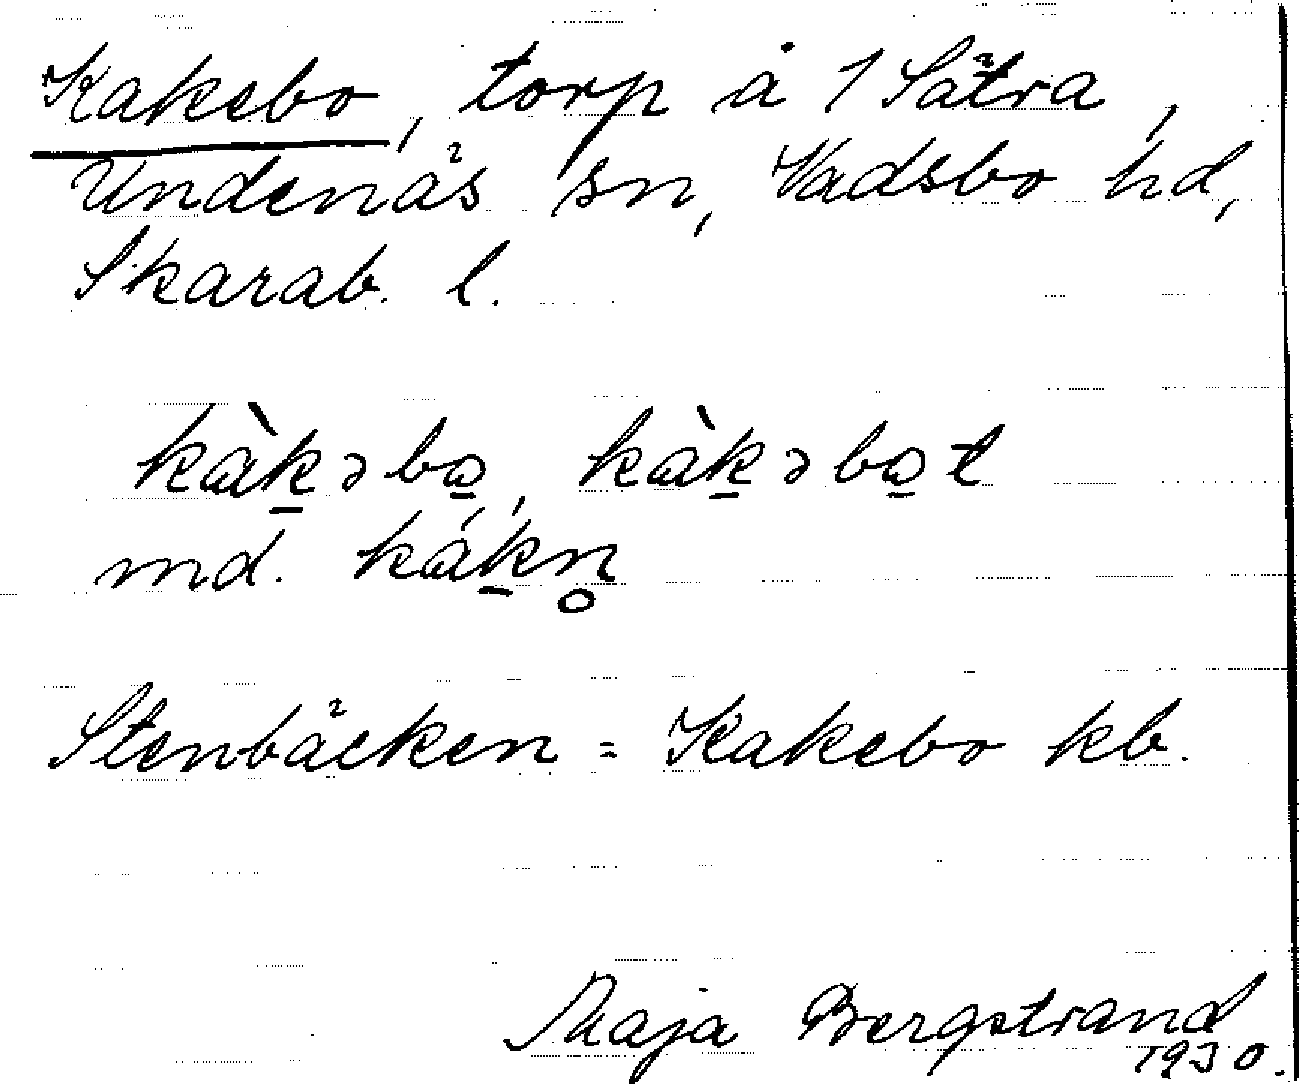 Kakebo, torp å 1 Sätra,
Undenäs sn, Vadsbo hd,
Skarab. l.
kàk̠əbo̠, kàk̠əbo̠t
md. kák̠n̥
Stenbäcken = Kakebo kb.
Maja Bergstrand
1930.